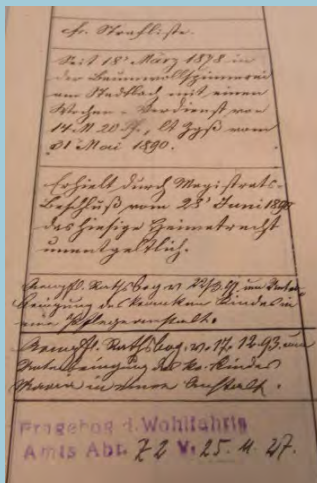 s. Strafliste.
Seit 18' März 1878 in
der Baumwollspinnerei
am Stadtbach mit einem
Wochen-Verdienst von
14 M. 20 Pf., lt Zgß vom
31 Mai 1890.
Erhielt durch Magistrats-
Beschluß vom 28' Juni 1890
das hiesige Heimatrecht
unentgeltlich.
Rathsbog. v. um Unter-
bringung des kranken Kindes in
eine Pflegeanstalt.
Rathsbog. v. 17. 12. 93. um
Unterbringung des kr. Kindes
in einer Anstalt.
Fragebog d. Wohlfahrts
Amts Abt. Z 2 V. 25. 11. 27.